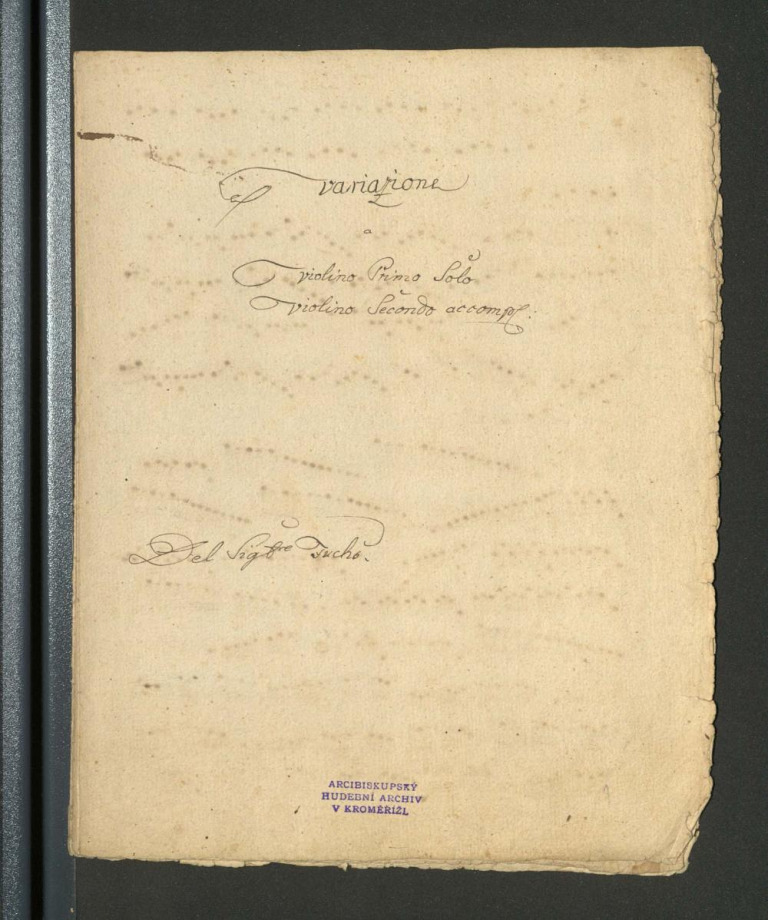 Variazione
a
Violino Primo Solo
Violino Secondo accomp:
Del Sigre Fuchs.
ARCIBISKUPSKÝ
HUDEBNÍ ARCHIV
V KROMĚŘÍŽI.